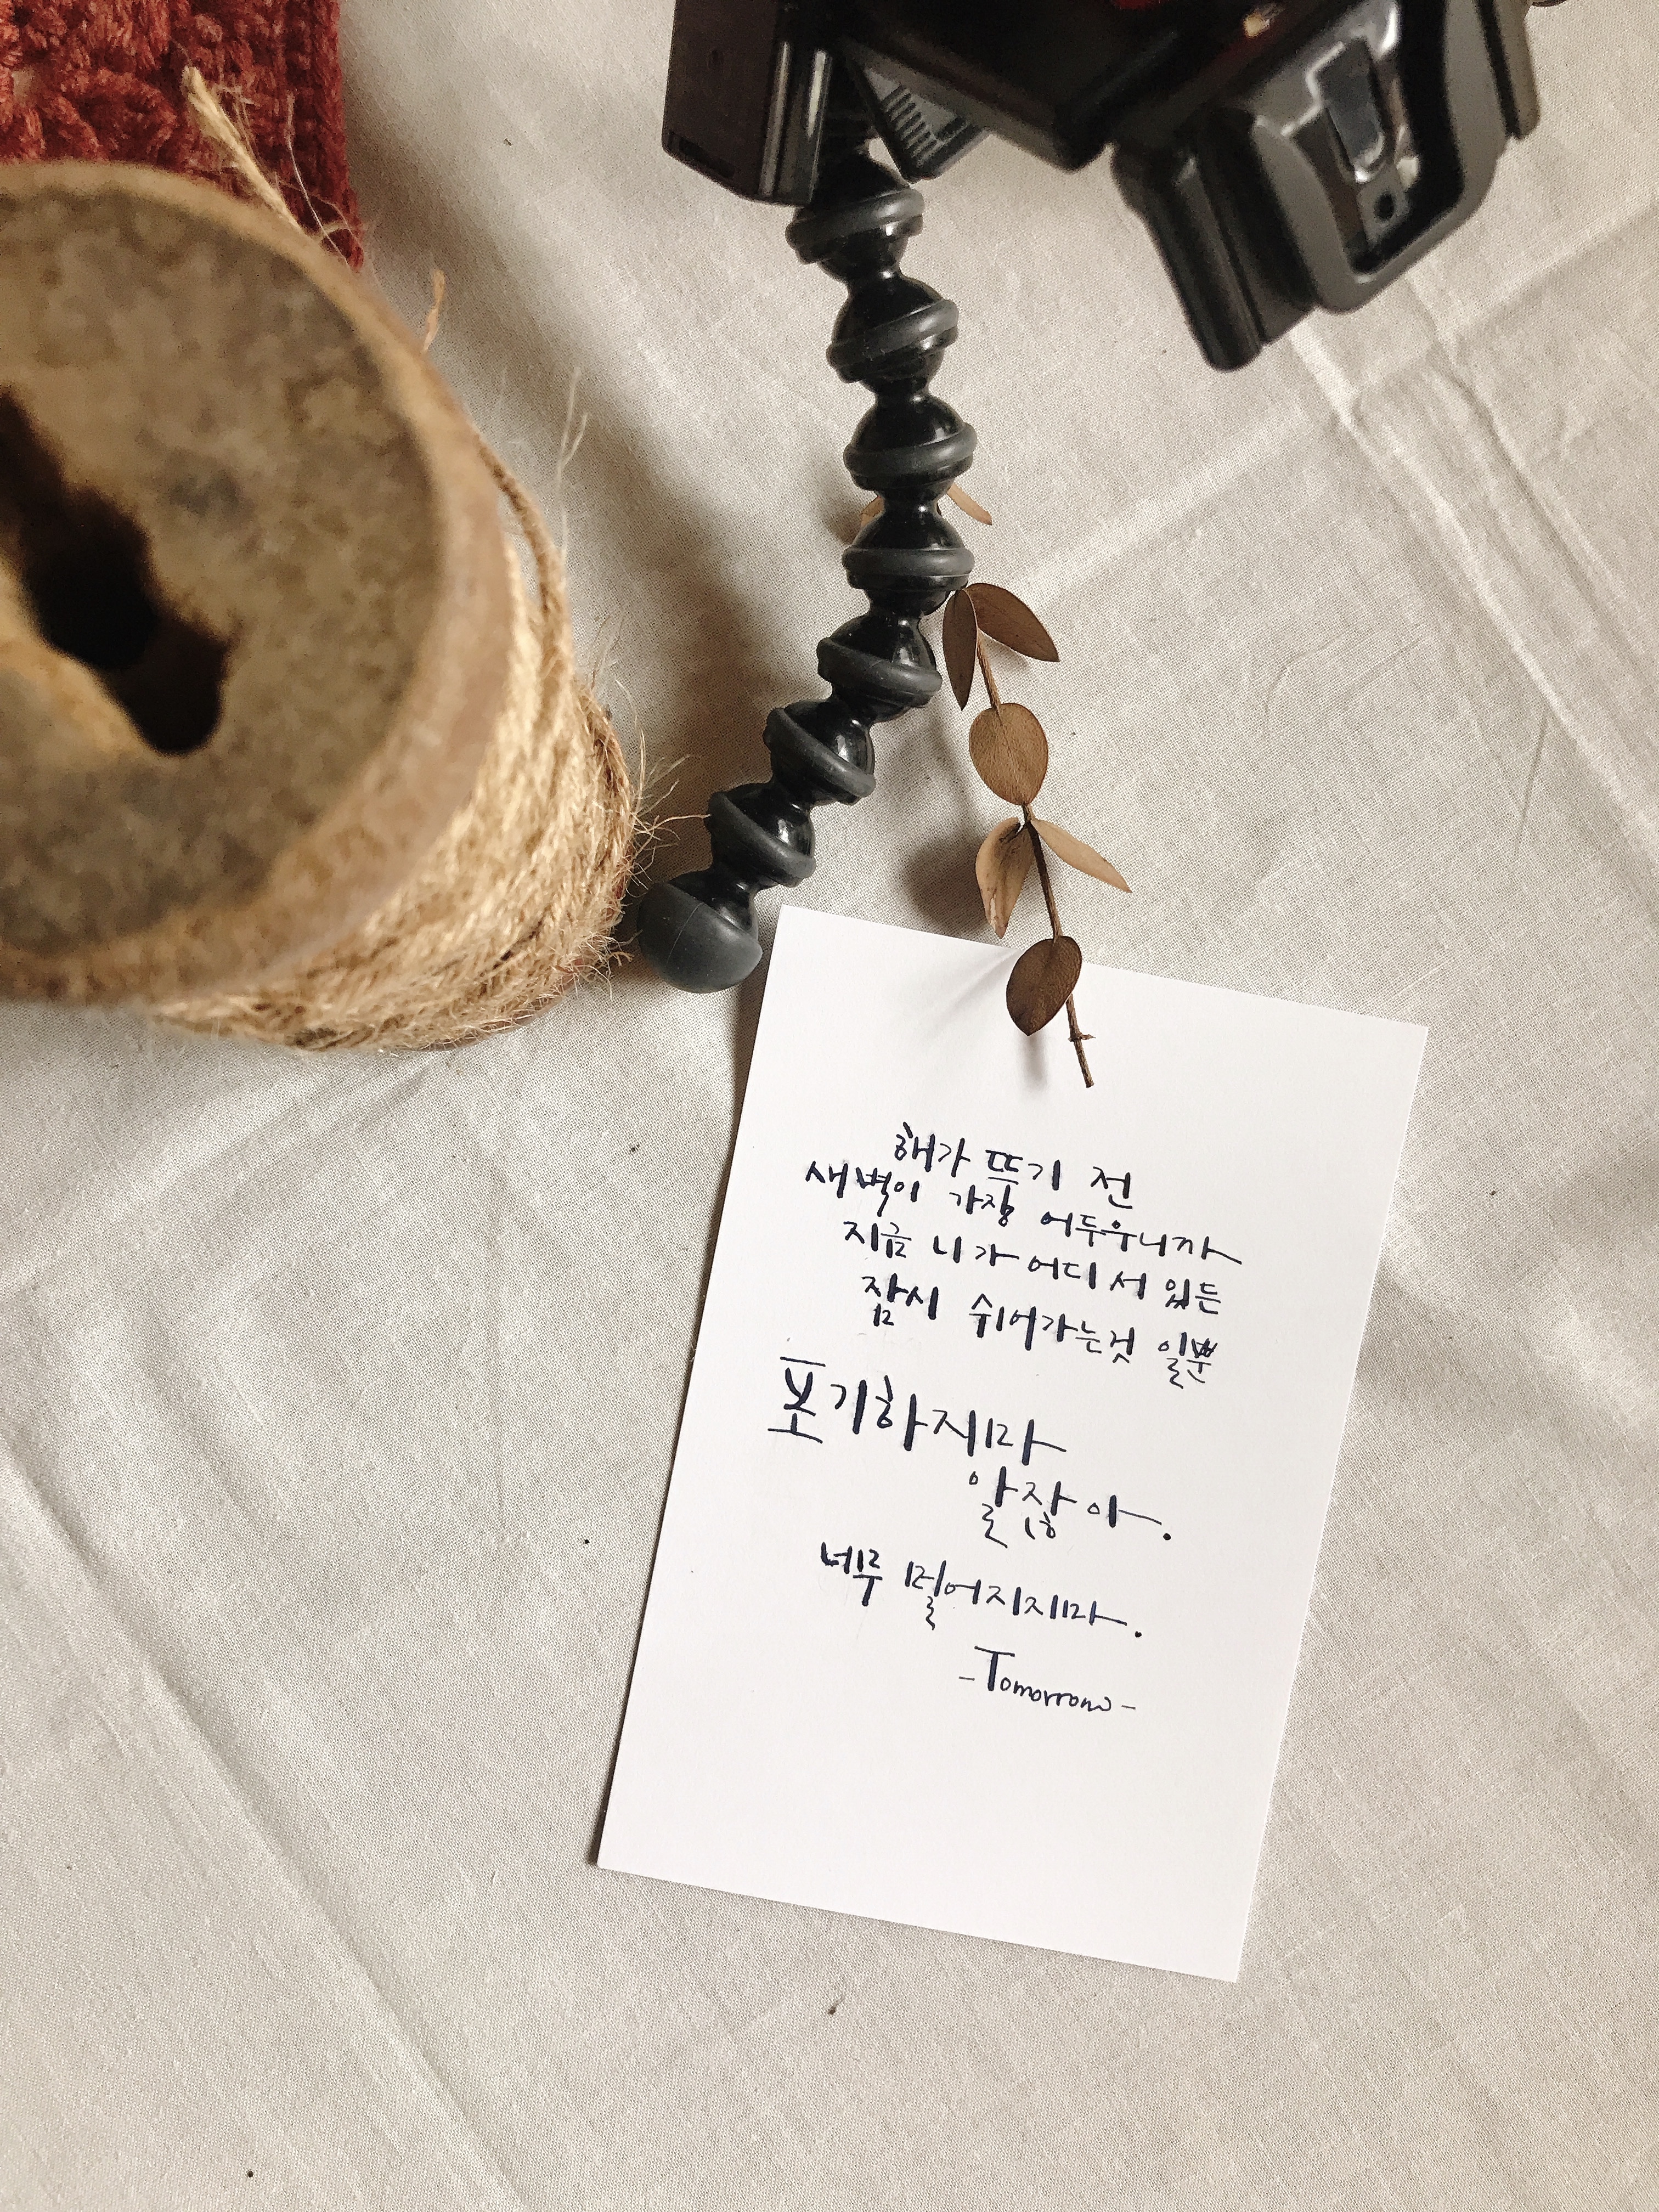 해가 뜨기 전
새벽이 가장 어두우니까
지금 니가 어디 서 있든
잠시 쉬어가는것 일뿐
포기하지마
알잖아.
너무 멀어지지마.
-Tomorrow-